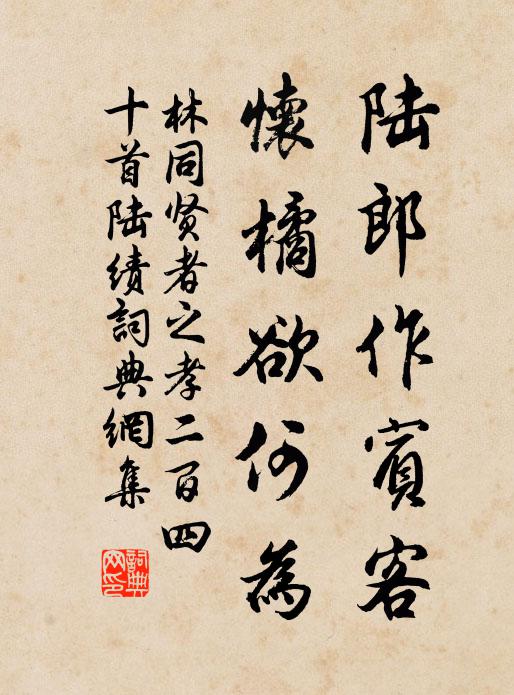 陆郎作賓客
懷橘欲何為
林同贤者之孝二百四
十首陆績詞典網集
詞典
网印